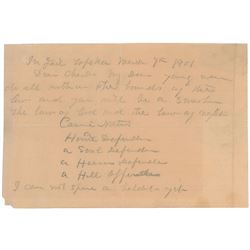 In Jail Topeka March 7th 1901
Dear Charles My Dear young man
do all within the bounds of the
law and you will be a
the law of God and the law of right
Carrie Nation
Home Defender
a Soul Defender
a Defender
a Hell
I can not spare a hatchet yet